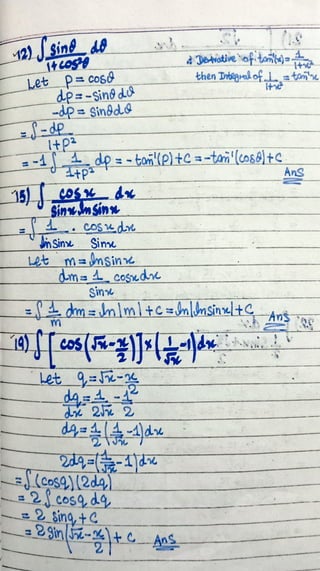 12) ∫ sinθ/(1+cos²θ) dθ
* Derivative of tan⁻¹(x) = 1/(1+x²)
then Integral of 1/(1+x²) = tan⁻¹x
Let p = cosθ
dp = -sinθdθ
-dp = sinθdθ
= ∫ -dp/(1+p²)
= -1 ∫ 1/(1+p²) dp = -tan⁻¹(p)+C = -tan⁻¹(cosθ)+C
Ans
15) ∫ cosx/(sinx lnsinx) dx
= ∫ 1/(lnsinx) . cosxdx/(sinx)
Let m = lnsinx
dm = 1/(sinx) cosxdx
= ∫ 1/m dm = ln|m|+C = ln|lnsinx|+C
Ans
19) ∫ [cos(√x - x/2)] × (1/√x - 1)dx
Let q = √x - x/2
dq/dx = 1/(2√x) - 1/2
dq = 1/2 (1/√x - 1)dx
2dq = (1/√x - 1)dx
= ∫ (cosq)(2dq)
= 2 ∫ cosq dq
= 2 sinq + C
= 2 sin(√x - x/2) + C Ans